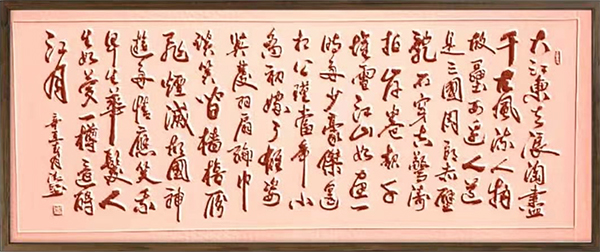 大江東去浪淘盡
千古風流人物
故壘西邊人道
是三國周郎赤壁
亂石穿空驚濤
拍岸卷起千
堆雪江山如畫一
時多少豪傑遙
想公瑾當年小
喬初嫁了雄姿
英發羽扇綸巾
談笑間檣櫓灰
飛煙滅故國神
遊多情應笑我
早生華髮人
生如夢一樽還酹
江月